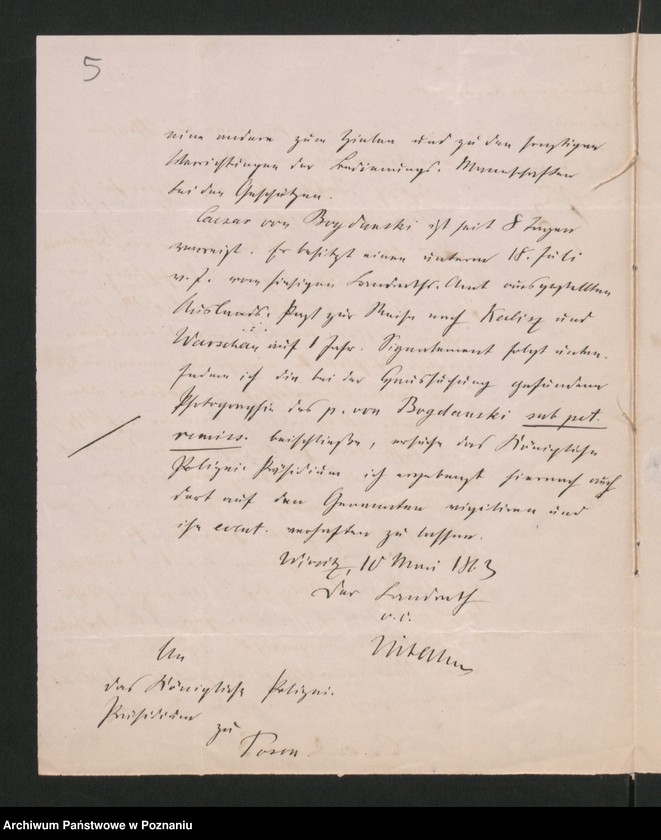 5
eine andere zum Zielen und zu den sonstigen
Verrichtungen der Bedienungs-Mannschaften
bei den Geschützen.
Caesar von Bogdanski ist seit 8 Tagen
verreist. Er besitzt einen unterm 18. Juli
v. J. vom hiesigen Landraths-Amt ausgestellten
Auslands-Paß zur Reise nach Kalisz und
Warschau auf 1 Jahr. Signalement folgt unten.
Indem ich die bei der Haussuchung gefundene
Photographie des p. von Bogdanski sub pet.
remiss. beischließe, ersuche das Königliche
Polizei-Präsidium ich ergebenst hiernach auch
dort auf den Genannten vigiliren und
ihn event. verhaften zu lassen.
Wirsitz, 10 Mai 1863
Der Landrath
An
das Königliche Polizei-
Präsidium
zu
Posen.
Archiwum Państwowe w Poznaniu